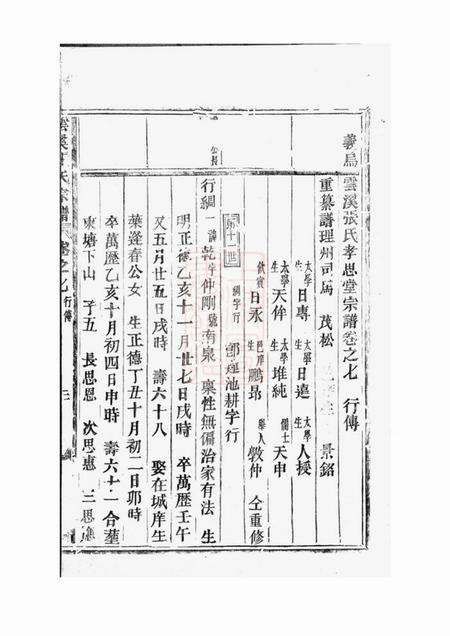 義烏雲溪張氏孝思堂宗譜卷之七 行傳
重纂譜理州司馬 茂松 景銘
太學生日專 太學生日遠 太學生人授
太學生天倖 太學生堆純 儒士天申
飲賓日永 邑庠生鵬昂 舉人敦仲 仝重修
第十一世 綱字行 即蓮池耕字行
行綱一 諱乾 字仲剛 號南泉 稟性無偏治家有法 生
明正德乙亥十一月廿七日戌時 卒萬歷壬午
又五月廿五日戌時 壽六十八 娶在城庠生
葉逢春公女 生正德丁丑十月初二日卯時
卒萬歷乙亥十月初四日申時 壽六十一 合塟
東塘下山 子五 長思恩 次思惠 三思
氏宗譜 卷之七 行傳 三